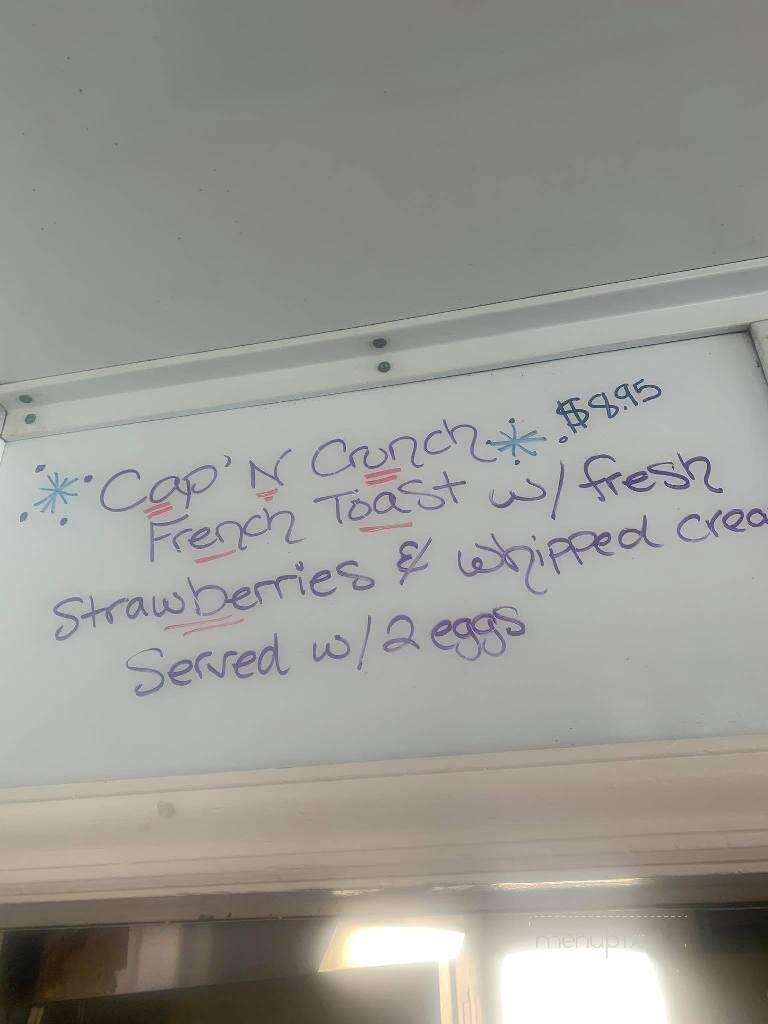 Cap'N Crunch $8.95
French Toast w/ fresh
Strawberries & whipped crea
Served w/ 2 eggs